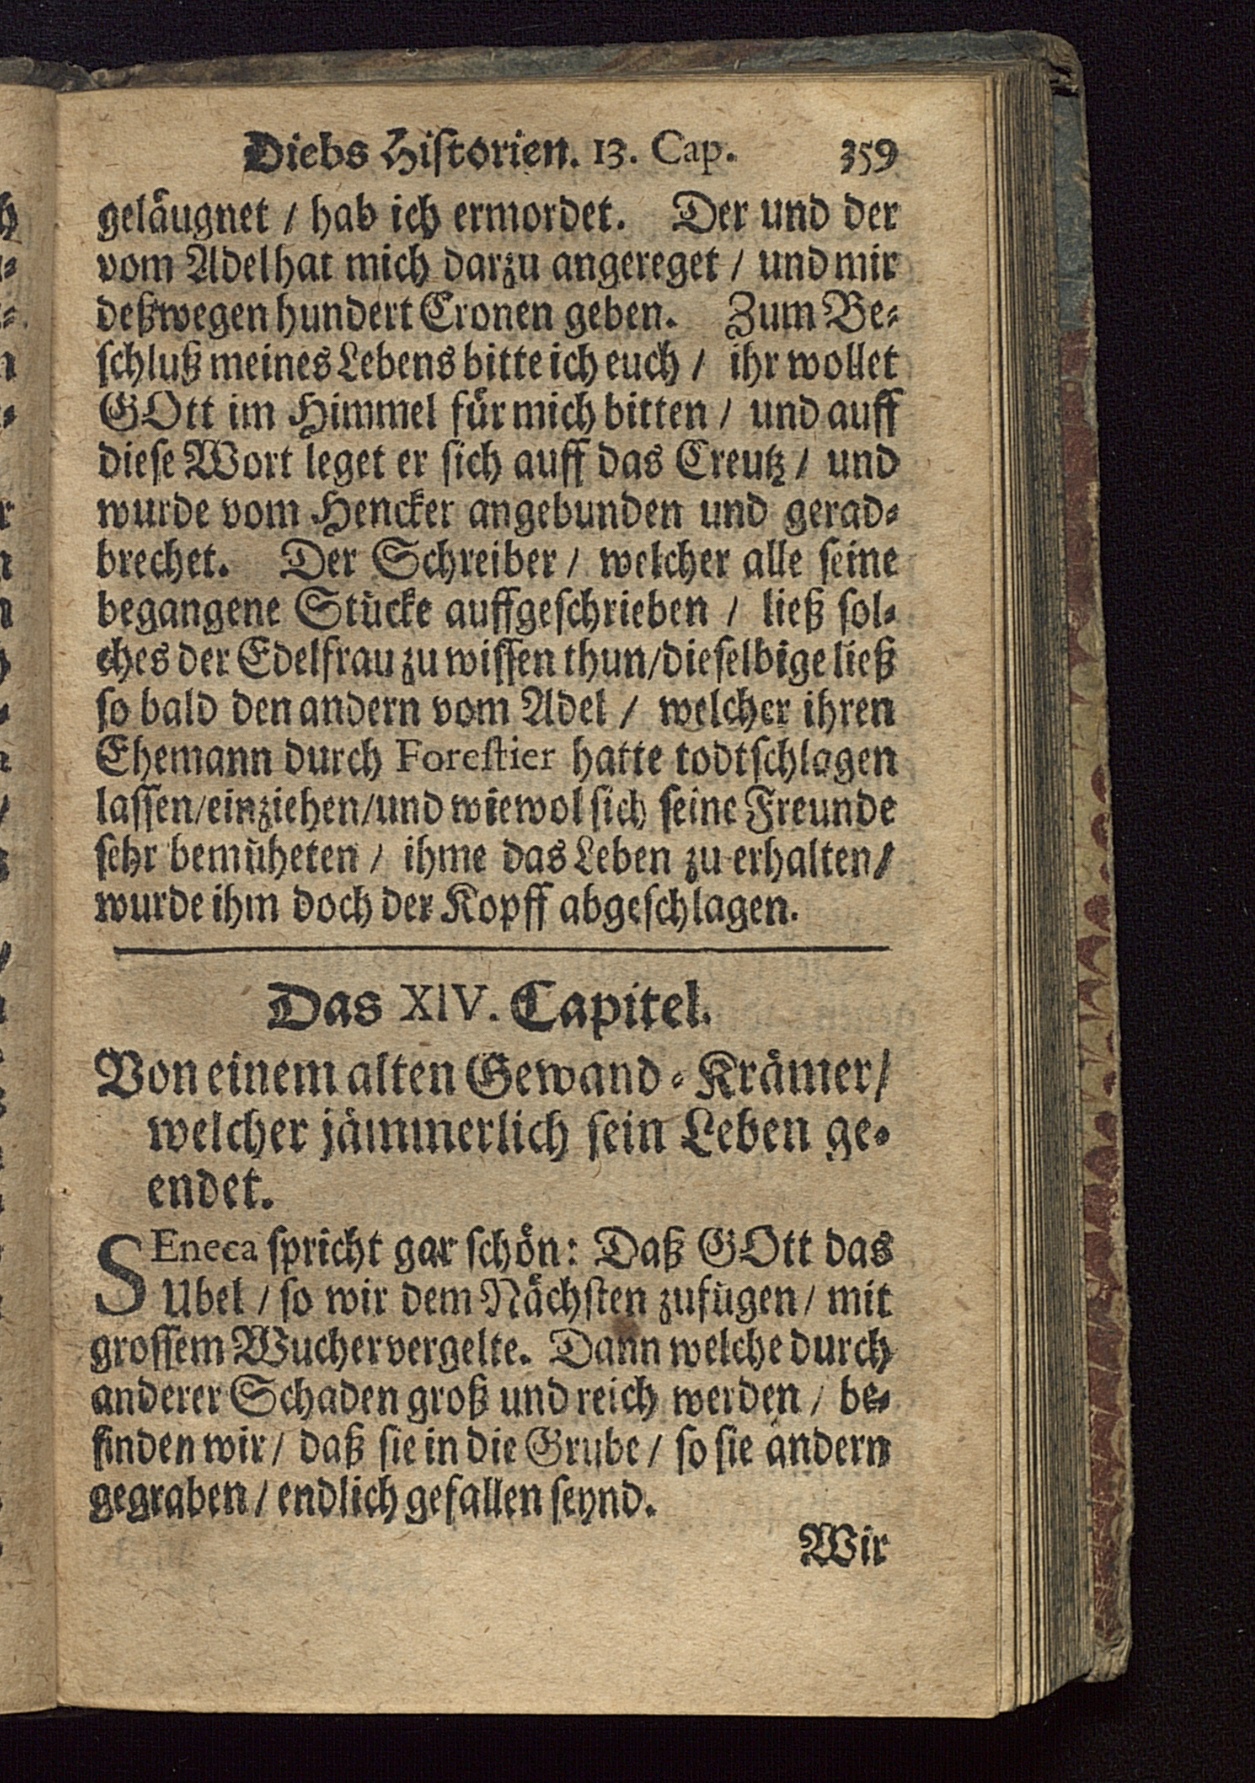 Diebs Historien. 13. Cap. 359
geläugnet / hab ich ermordet. Der und der
vom Adel hat mich darzu angereget / und mir
deßwegen hundert Cronen geben. Zum Be-
schluß meines Lebens bitte ich euch / ihr wollet
GOtt im Himmel für mich bitten / und auff
diese Wort leget er sich auff das Creutz / und
wurde vom Hencker angebunden und gerad-
brechet. Der Schreiber / welcher alle seine
begangene Stücke auffgeschrieben / ließ sol-
ches der Edelfrau zu wissen thun/dieselbige ließ
so bald den andern vom Adel / welcher ihren
Ehemann durch Forestier hatte todtschlagen
lassen/einziehen/und wiewol sich seine Freunde
sehr bemüheten / ihme das Leben zu erhalten/
wurde ihm doch der Kopff abgeschlagen.
Das XIV. Capitel.
Von einem alten Gewand-Krämer/
welcher jämmerlich sein Leben ge-
endet.
SEneca spricht gar schön: Daß GOtt das
Ubel / so wir dem Nächsten zufügen / mit
grossem Wucher vergelte. Dann welche durch
anderer Schaden groß und reich werden / be-
finden wir / daß sie in die Grube / so sie andern
gegraben / endlich gefallen seynd.
Wir